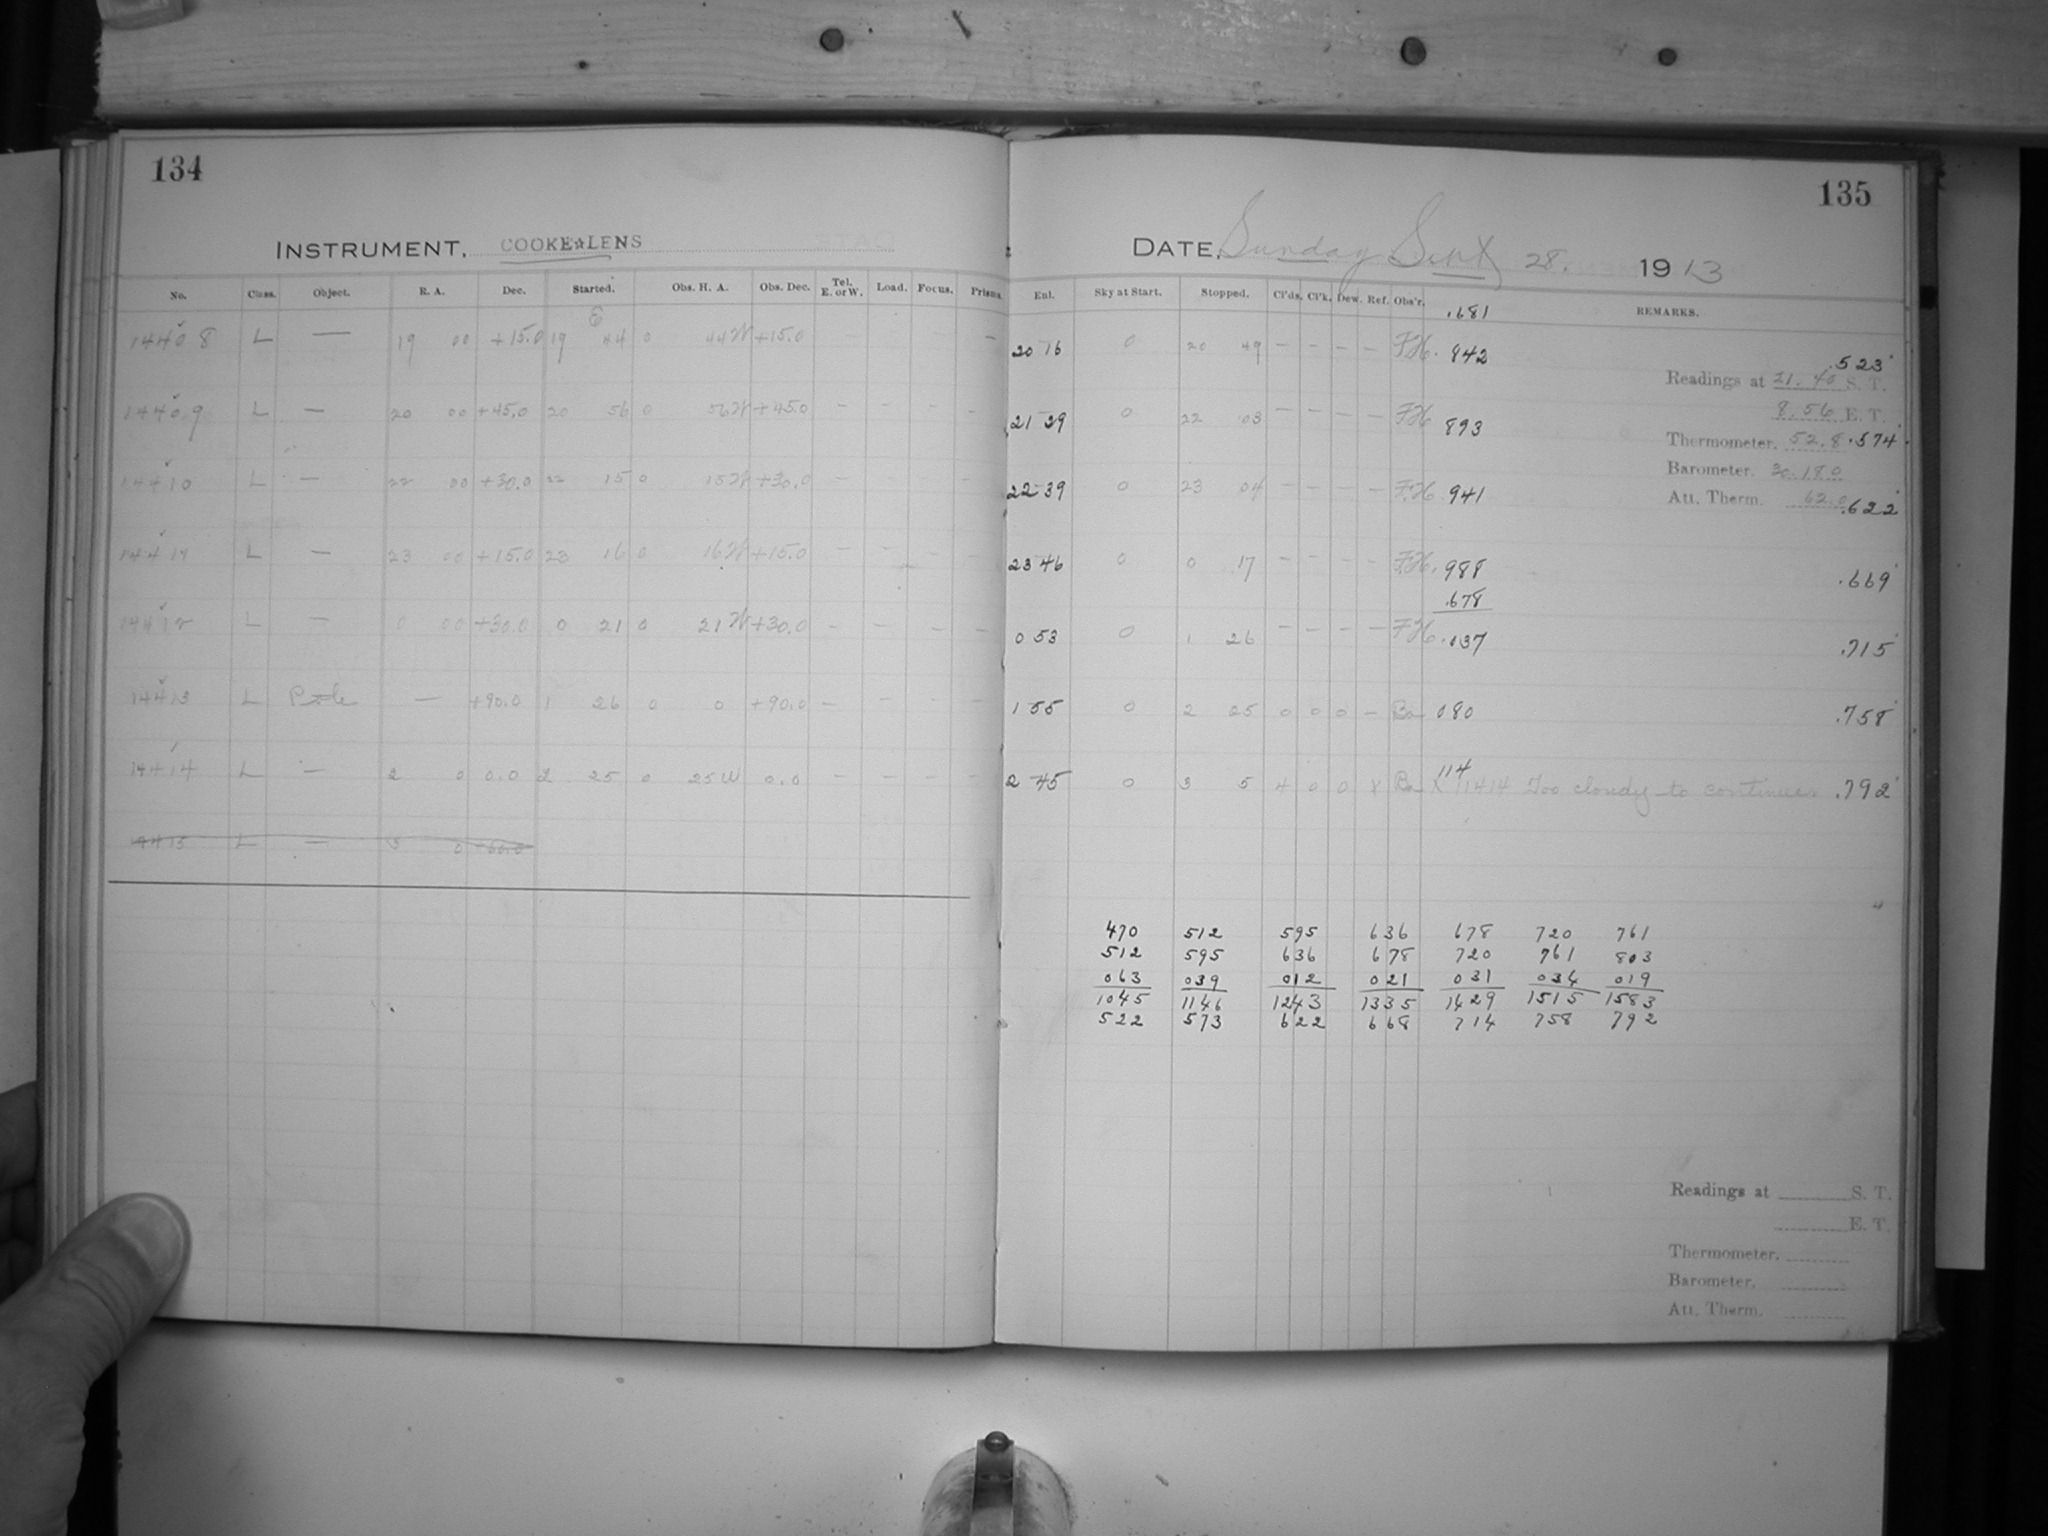 134
INSTRUMENT, COOKE☆LENS
No. Class. Object. R. A. Dec. Started. Obs. H. A. Obs. Dec. Tel. E. or W. Load. Focus. Prisms
14408 L — 19 00 +15.0 19 44 0 44W +15.0 — —
14409 L — 20 00 +45.0 20 56 0 56W +45.0 — — — —
14410 L — 22 00 +30.0 22 15 0 15W +30.0 — — — —
14411 L — 23 00 +15.0 23 16 0 16W +15.0 — — — —
14412 L — 0 00 +30.0 0 21 0 21W +30.0 — — — —
14413 L Pole — +90.0 1 26 0 0 +90.0 — — — —
14414 L — 2 0 0.0 2 25 0 25W 0.0 — — — —
14415 L — 0 +60.0
135
DATE, Sunday Sept 28. 1913
Enl. Sky at Start. Stopped. Cl'ds. Cl'k. Dew. Ref. Obs'r. REMARKS.
.681
20 16 0 20 49 — — — — F.H. .842 .523
Readings at 21.40 S. T.
8.56 E. T.
21 29 0 22 03 — — — — F.H. 893
Thermometer. 52.8 .574
Barometer. 30.180
22 39 0 23 04 — — — — F.H. 941
Att. Therm. 62.0 .622
23 46 0 0 17 — — — — F.H. .988 .669
.678
0 53 0 1 26 — — — — F.H. .037 .715
1 55 0 2 25 0 0 0 — Ba 080 .758
114
2 45 0 3 5 4 0 0 X Ba X 11414 Too cloudy to continue .792
470 512 595 636 678 720 761
512 595 636 678 720 761 803
063 039 012 021 031 034 019
1045 1146 1243 1335 1429 1515 1583
522 573 622 668 714 758 792
Readings at S. T.
E. T.
Thermometer.
Barometer.
Att. Therm.